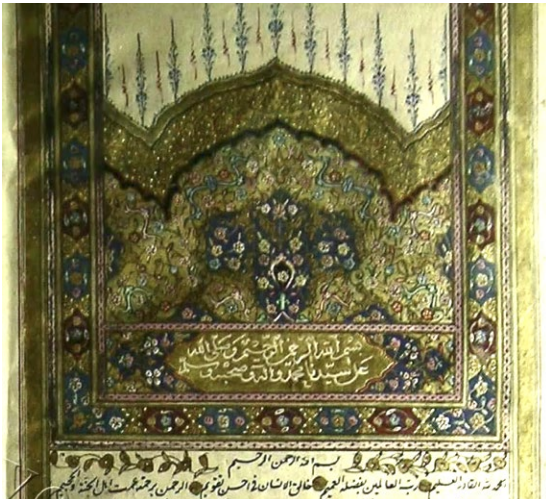 بسم الله الرحمن الرحيم وصلى الله
على سيدنا محمد وآله وصحبه وسلم
بسم الله الرحمن الرحيم
الحمد لله القادر العليم رب العالمين بفضله العميم خالق الانسان فى احسن تقويم الرحمن برحمته